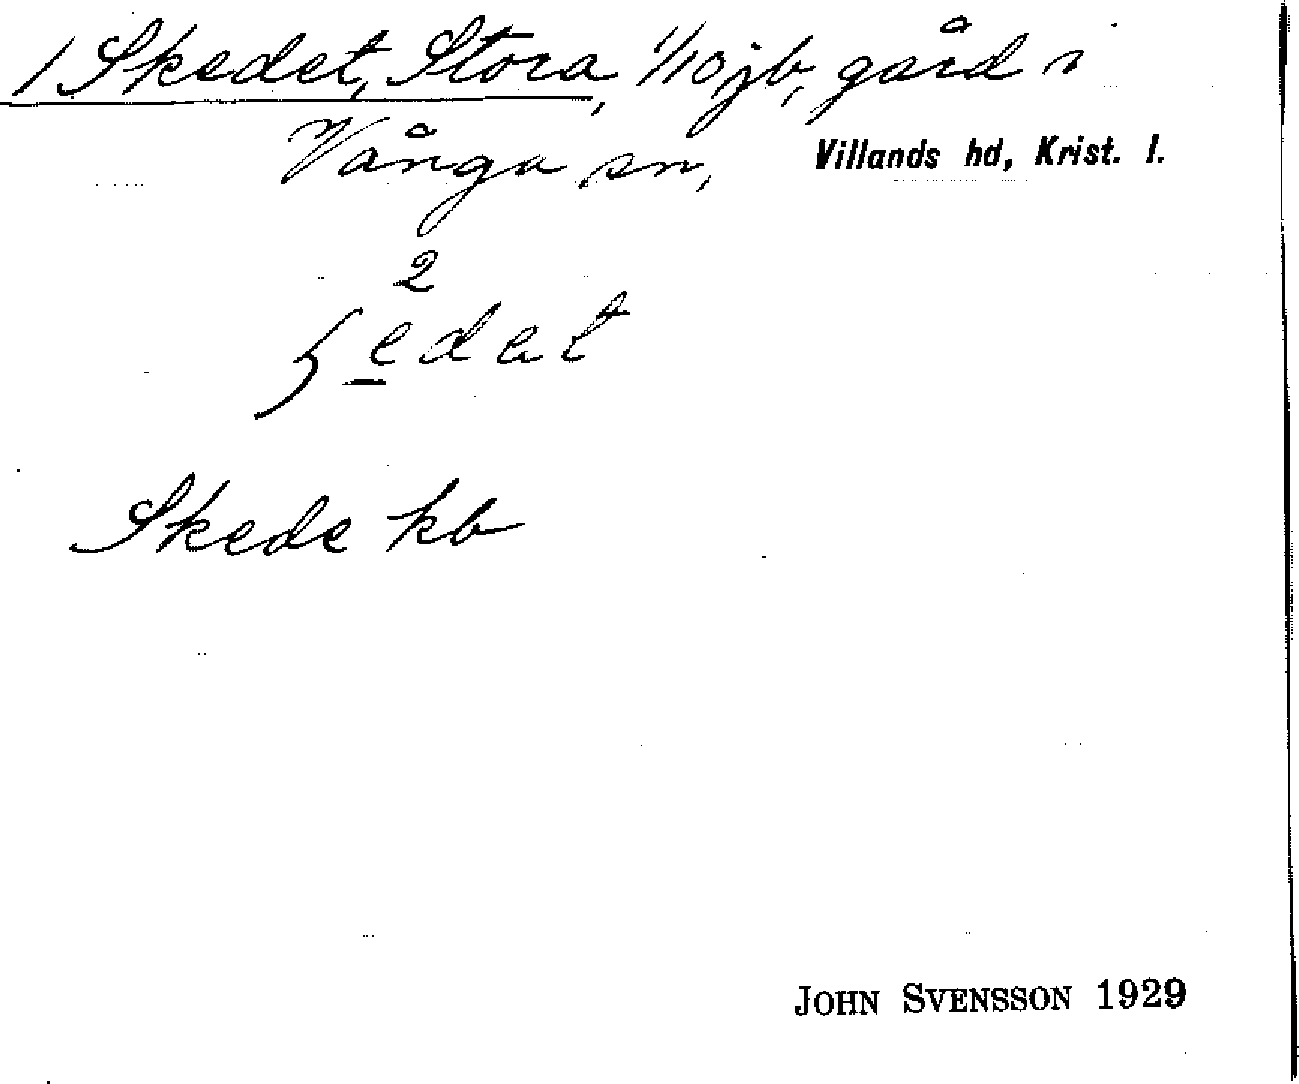 1 Skedet, Stora, 1/10 jb, gård i
Vånga sn, Villands hd, Krist. l.
2
ʃedət
Skede kb
JOHN SVENSSON 1929